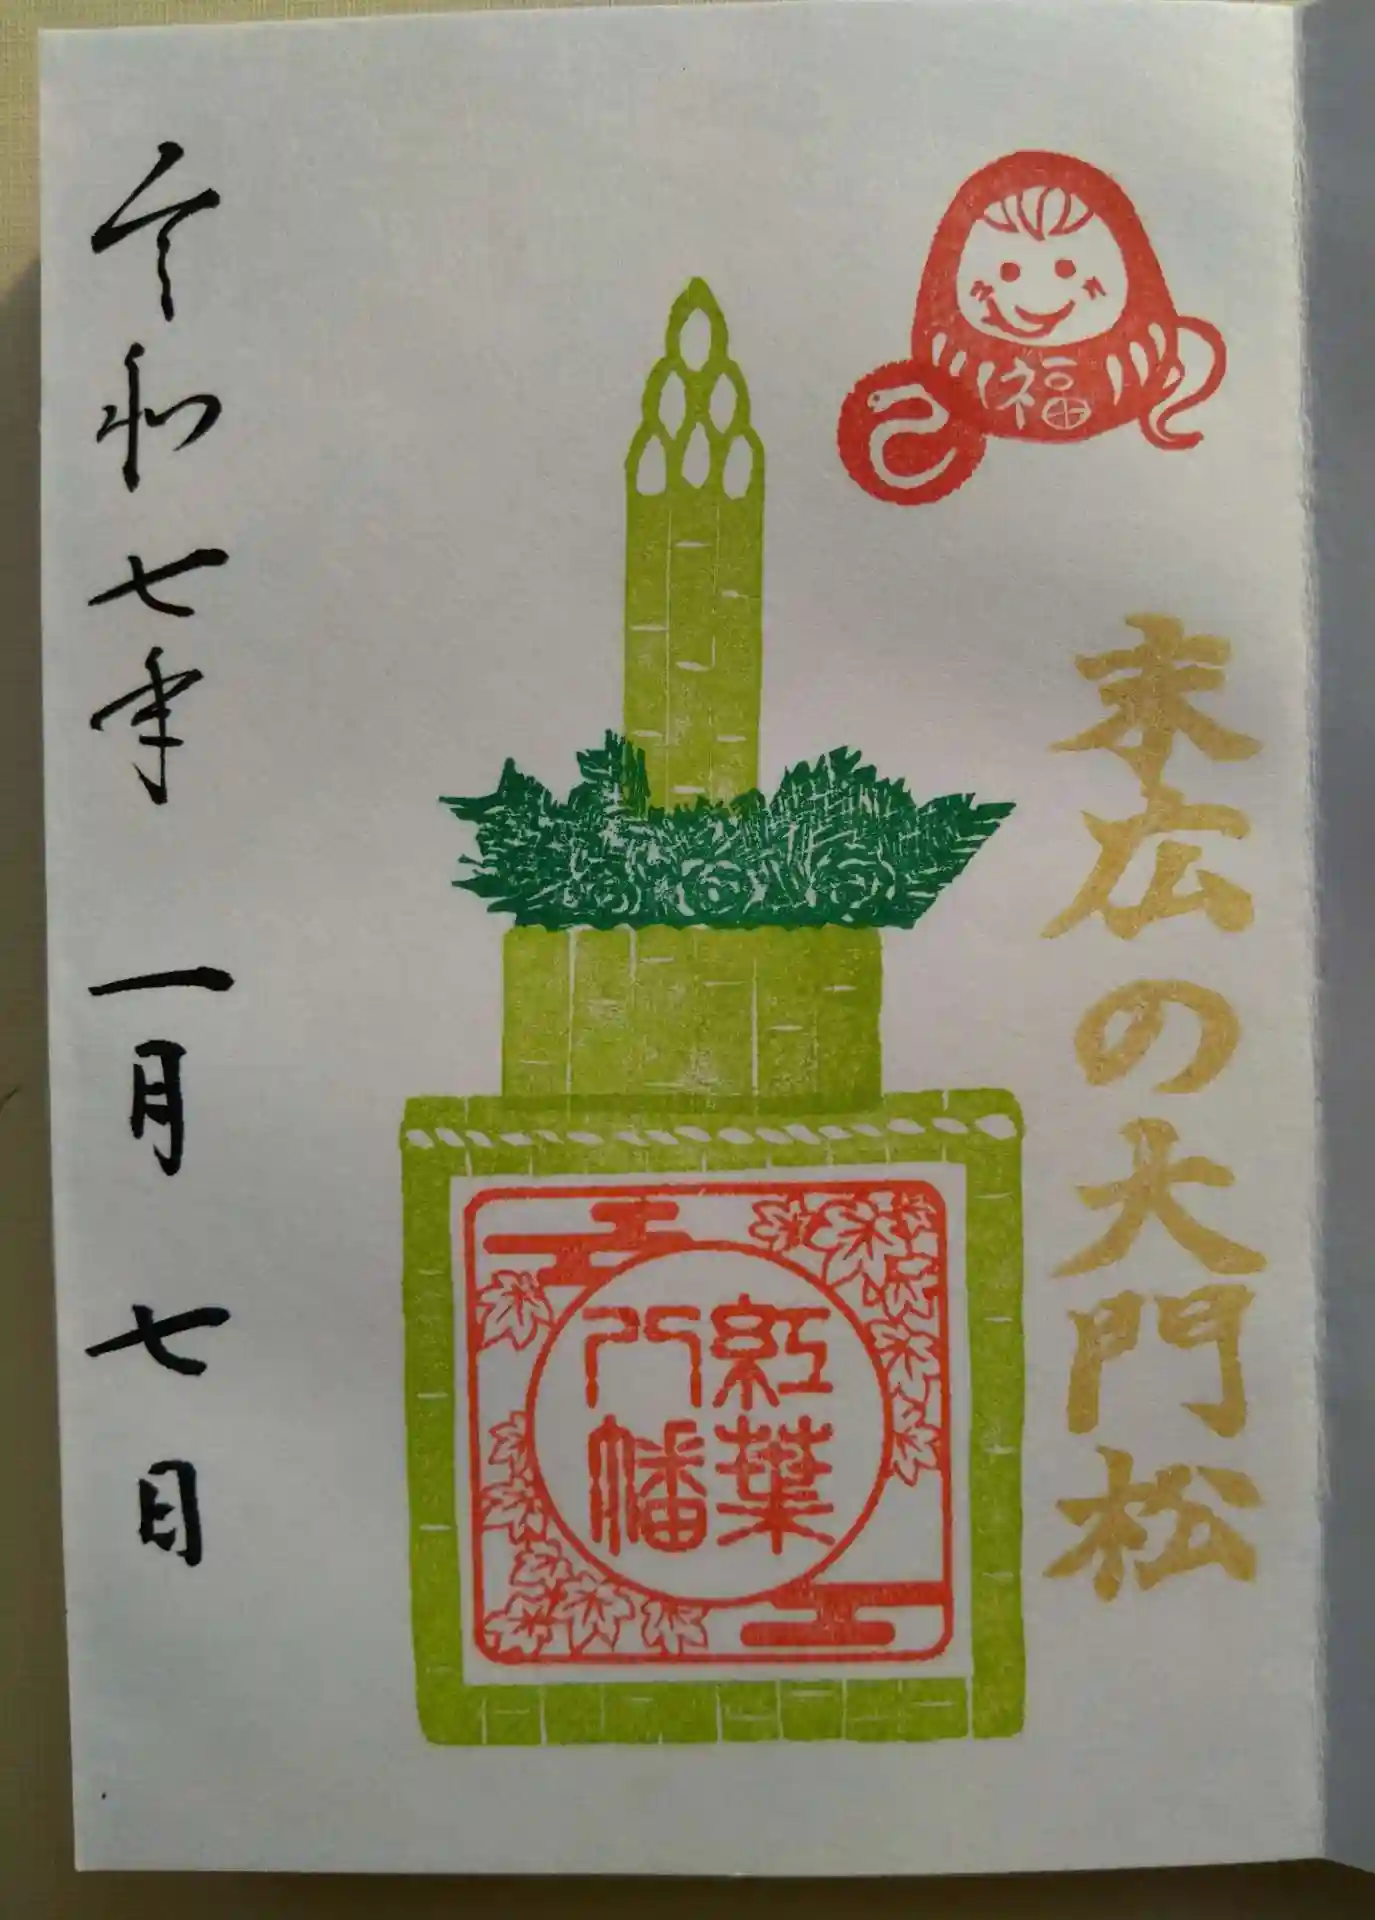 福
末広の大門松
紅葉
八幡
令和七年 一月 七日